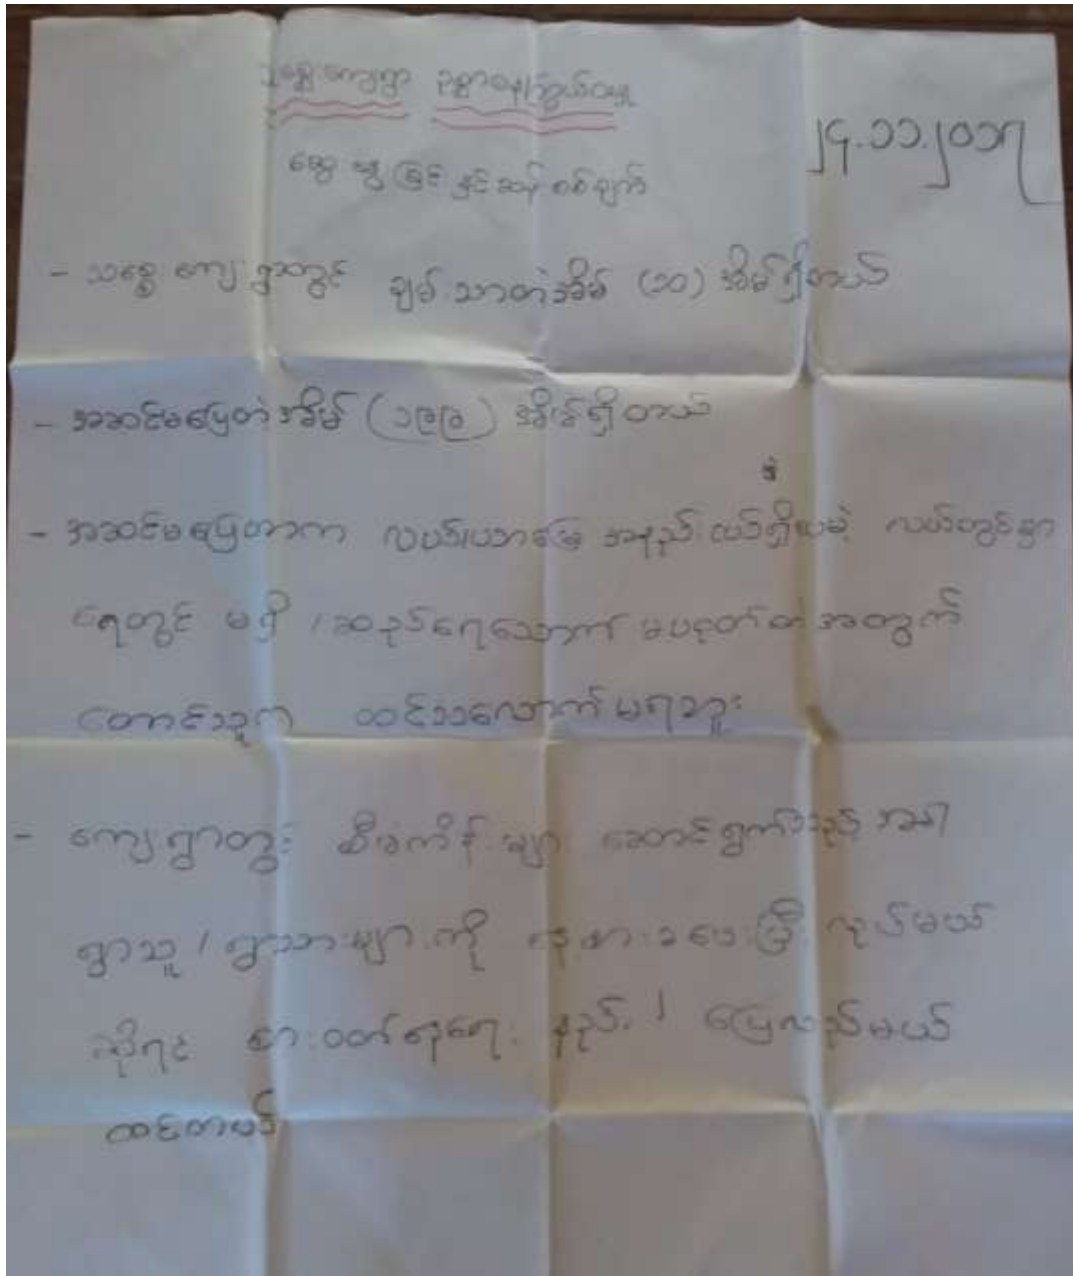 သစ္စေးကျေးရွာ ဥစ္စာဓန ကြွယ်ဝမှု
ဆွေးနွေးခြင်းနှင့်ဆန်းစစ်ချက်
၂၄.၁၁.၂၀၁၇
- သစ္စေးကျေးရွာတွင် ချမ်းသာတဲ့အိမ် (၁၀) အိမ်ရှိတယ်
- အဆင်မပြေတဲ့အိမ် (၁၉၉) အိမ်ရှိတယ်
- အဆင်မပြေတာက လယ်/ယာမြေ အနည်းငယ်ရှိပေမဲ့ လယ်တွင်းမှာ
ရေတွင်း မရှိ / ဆည်ရေသောက် မပတ်တဲ့အတွက်
တောင်သူက ထင်သလောက်မရဘူး
- ကျေးရွာတွင်း စီမံကိန်းများ ဆောင်ရွက်သည့်အခါ
ရွာသူ / ရွာသားများကို နေ့စားခပေးပြီး လုပ်မယ်
ဆိုရင် စားဝတ်နေရေး နည်းနည်း ပြေလည်မယ်
ထင်တယ်